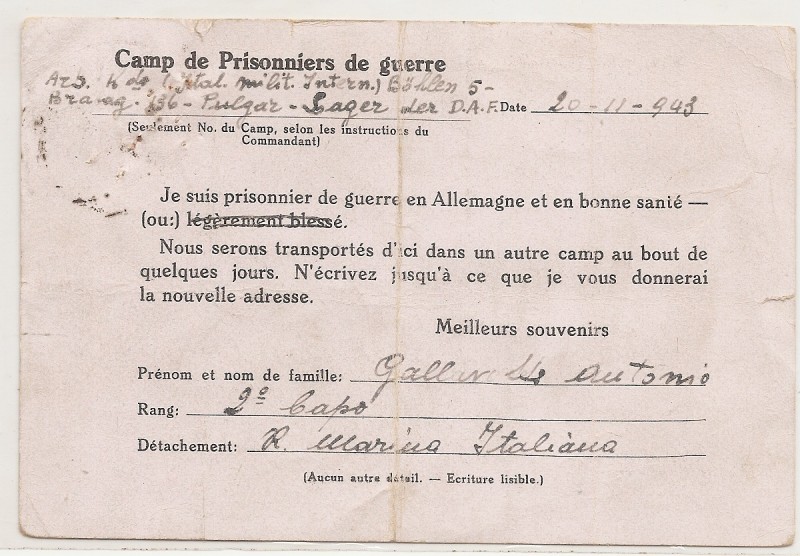 Camp de Prisonniers de guerre
Ars. Kdo (Ital. milit. Intern.) Böhlen 5-
Brabag. 136 - Pulgar - Lager der D.A.F. Date 20-11-943
(Seulement No. du Camp, selon les instructions du
Commandant)
Je suis prisonnier de guerre en Allemagne et en bonne sanié —
(ou:) légèrement blessé.
Nous serons transportés d'ici dans un autre camp au bout de
quelques jours. N'écrivez jusqu'à ce que je vous donnerai
la nouvelle adresse.
Meilleurs souvenirs
Prénom et nom de famille: Antonio
Rang: 2º Capo
Détachement: R. Marina Italiana
(Aucun autre détail. — Ecriture lisible.)